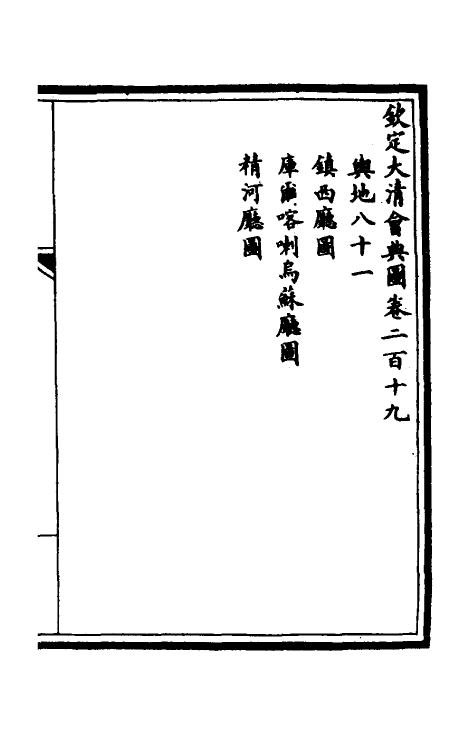 欽定大清會典圖卷二百十九
輿地八十一
鎮西廳圖
庫爾喀喇烏蘇廳圖
精河廳圖